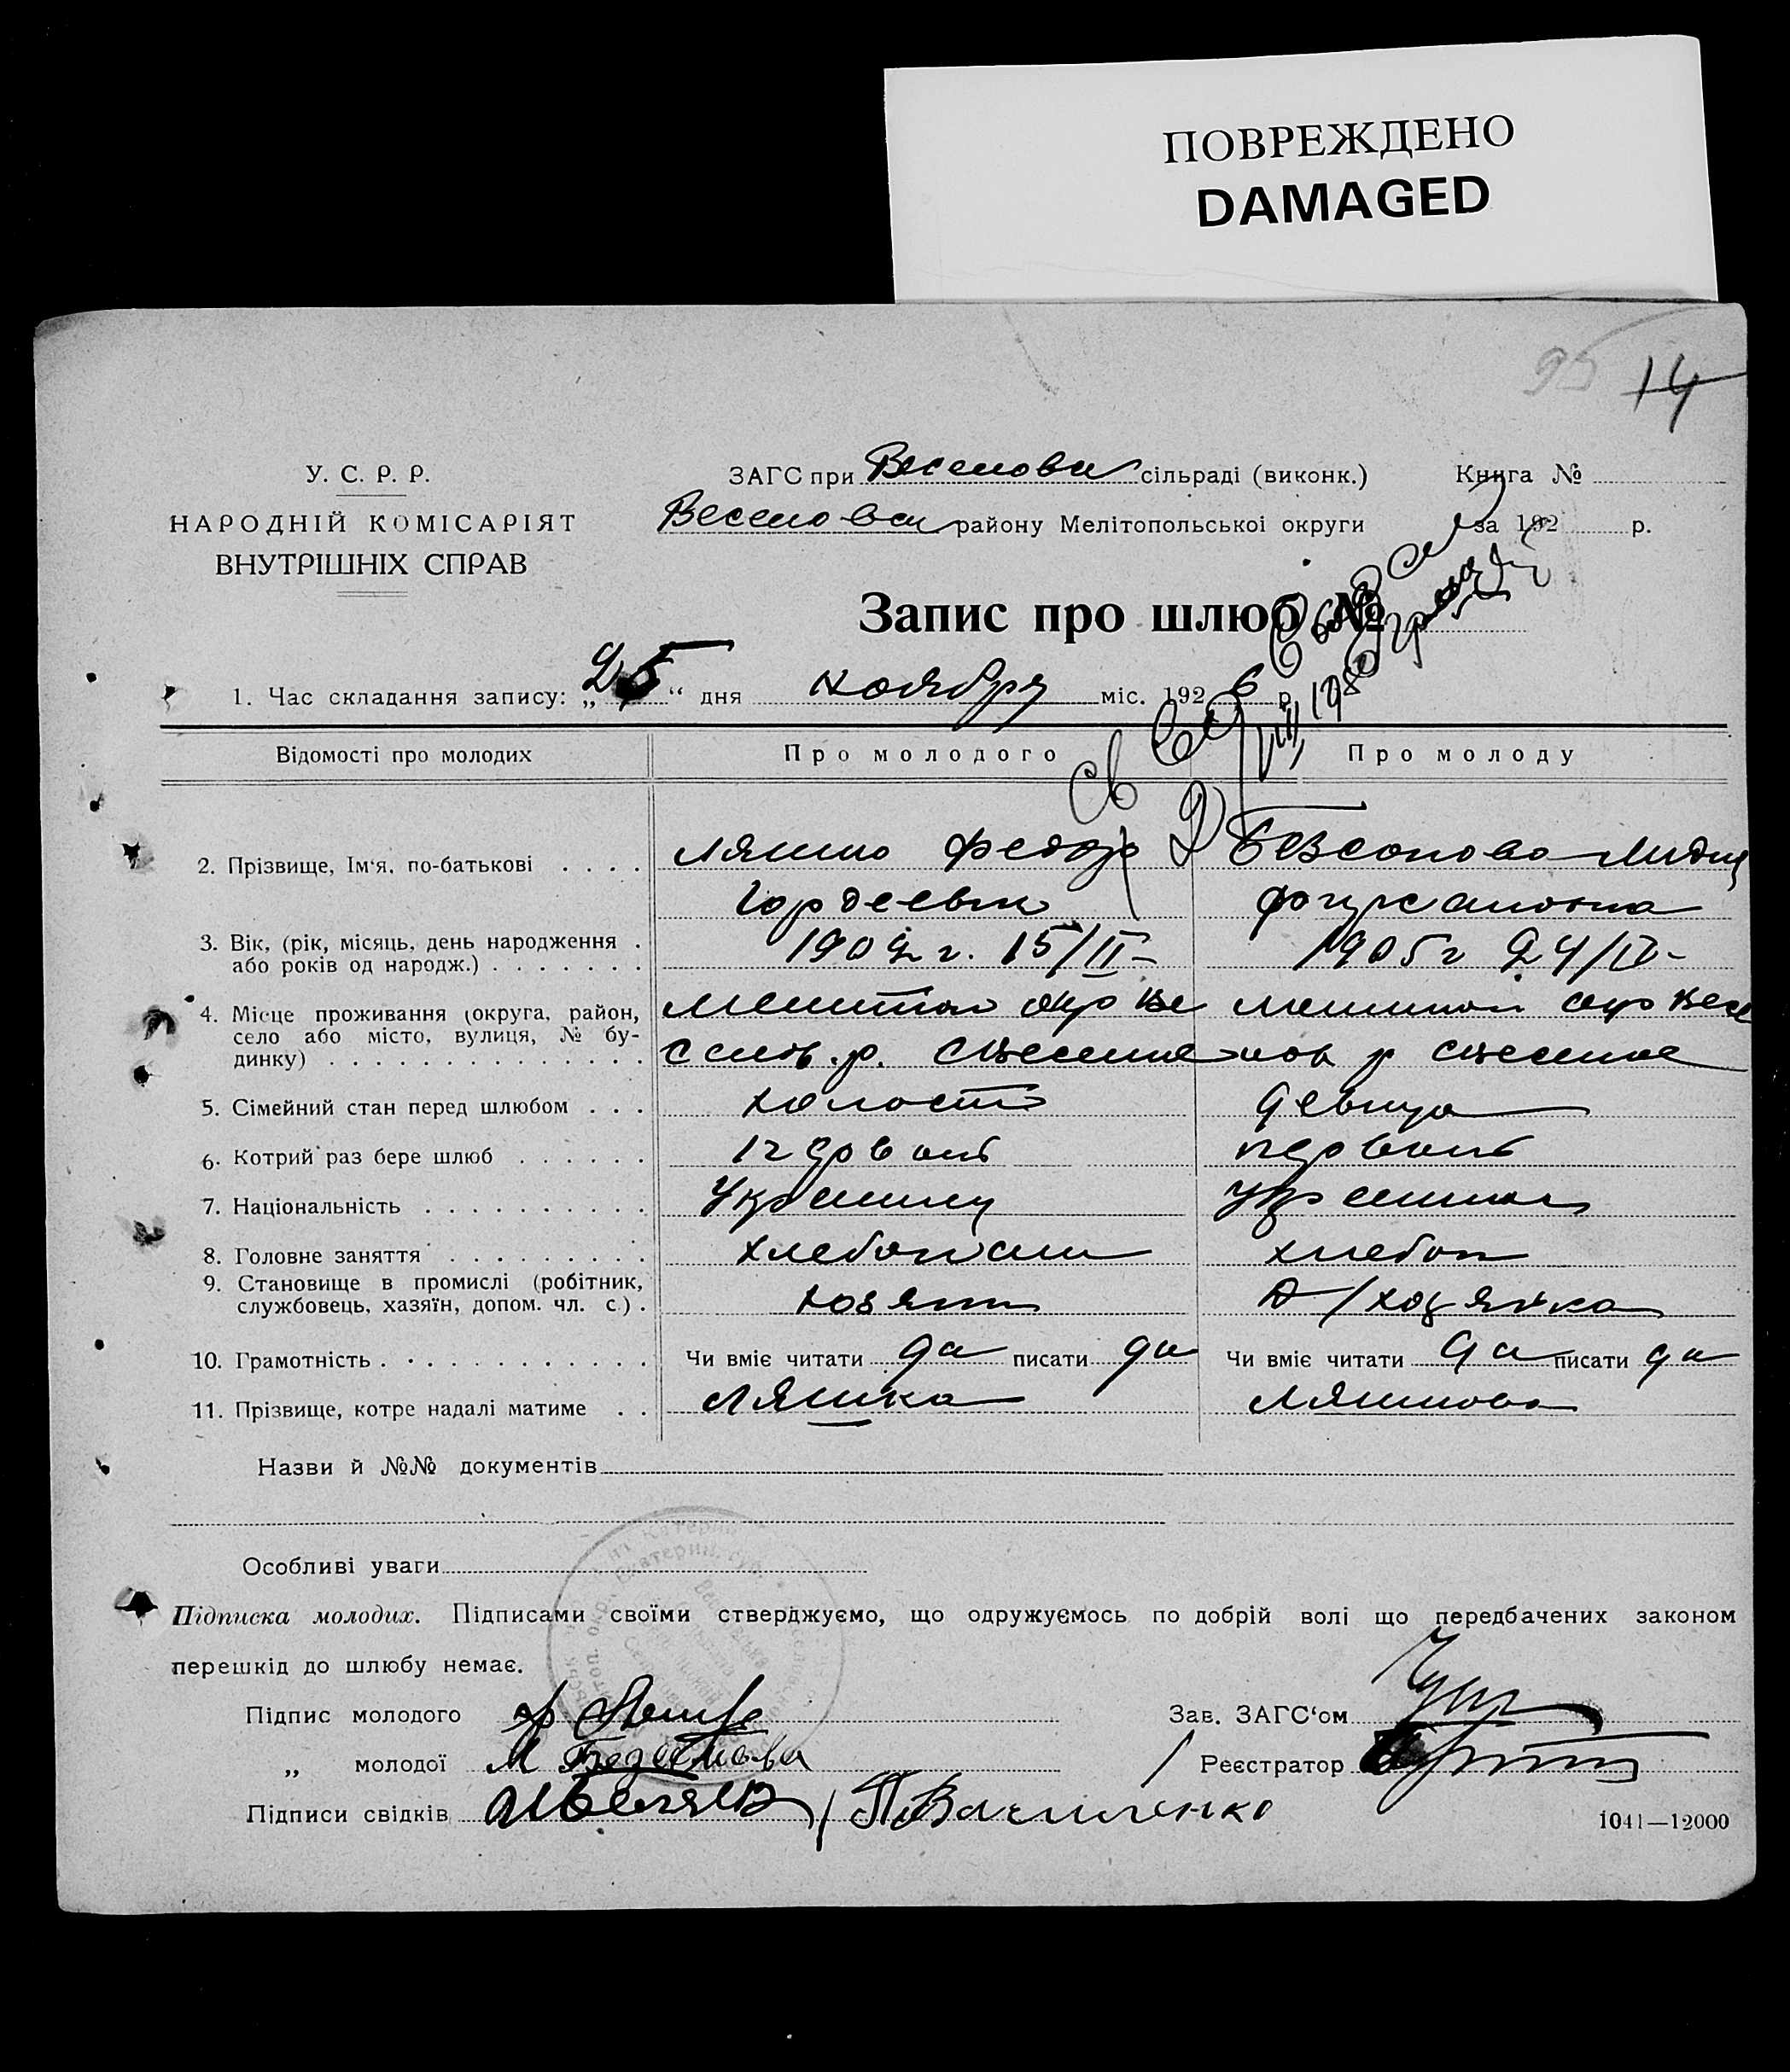 ПОВРЕЖДЕНО
DAMAGED
95 14
У. С. Р. Р.
НАРОДНІЙ КОМІСАРІЯТ
ВНУТРІШНІХ СПРАВ
ЗАГС при Веселовск сільраді (виконк.)
Веселовск району Мелітопольської округи
Книга №
за 192 р.
Запис про шлюб №
1. Час складання запису: „25“ дня ноября міс. 1926 р.
Відомості про молодих Про молодого Про молоду
2. Прізвище, Ім‘я, по-батькові Ляшко Федор Безсонова Лидия
Гордеевич
3. Вік, (рік, місяць, день народження 1902 г. 15/II– 1905 г 24/IV–
або років од народж.)
4. Місце проживання (округа, район, Мелитоп окр Ве Мелитоп окр Весе
село або місто, вулиця, № бу-
динку) селов. р. с Веселое лов р с Веселое
5. Сімейний стан перед шлюбом холост девица
6. Котрий раз бере шлюб первый первый
7. Національність Украинец Украинка
8. Головне заняття хлебопаш хлебоп
9. Становище в промислі (робітник,
службовець, хазяїн, допом. чл. с.) хозяин д/хозяйка
10. Грамотність Чи вміє читати да писати да Чи вміє читати да писати да
11. Прізвище, котре надалі матиме Ляшко Ляшкова
Назви й №№ документів
Особливі уваги
Підписка молодих. Підписами своїми стверджуємо, що одружуємось по добрій волі що передбачених законом
перешкід до шлюбу немає.
Підпис молодого Ф Ляшко
„ молодої Л Безсонова
Підписи свідків П Василенко
Зав. ЗАГС‘ом
Реєстратор
1041—12000